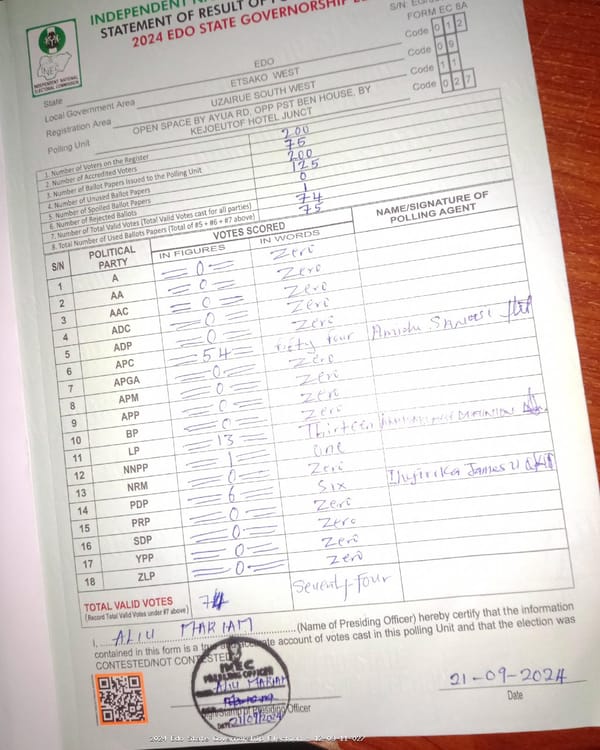 INDEPENDENT
STATEMENT OF RESULT OF
2024 EDO STATE GOVERNORSHIP
FORM EC 8A
State EDO Code 012
Local Government Area ETSAKO WEST Code 09
Registration Area UZAIRUE SOUTH WEST Code 11
Polling Unit OPEN SPACE BY AYUA RD, OPP PST BEN HOUSE, BY KEJOEUTOF HOTEL JUNCT Code 027
INDEPENDENT NATIONAL ELECTORAL COMMISSION
1. Number of Voters on the Register 200
2. Number of Accredited Voters 75
3. Number of Ballot Papers Issued to the Polling Unit 200
4. Number of Unused Ballot Papers 125
5. Number of Spoiled Ballot Papers 0
6. Number of Rejected Ballots 1
7. Number of Total Valid Votes (Total Valid Votes cast for all parties) 74
8. Total Number of Used Ballots Papers (Total of #5 + #6 + #7 above) 75
S/N POLITICAL PARTY VOTES SCORED NAME/SIGNATURE OF POLLING AGENT
IN FIGURES IN WORDS
1 A 0 Zero
2 AA 0 Zero
3 AAC 0 Zero
4 ADC 0 Zero
5 ADP 0 Zero
6 APC 54 Fifty four
7 APGA 0 Zero
8 APM 0 Zero
9 APP 0 Zero
10 BP 0 Zero
11 LP 13 Thirteen
12 NNPP 1 one
13 NRM 0 Zero
14 PDP 6 Six James
15 PRP 0 Zero
16 SDP 0 Zero
17 YPP 0 Zero
18 ZLP 0 Zero
TOTAL VALID VOTES 74 Seventy Four
(Record Total Valid Votes under #7 above)
I, ALIU MARIAM (Name of Presiding Officer) hereby certify that the information
contained in this form is a true and accurate account of votes cast in this polling Unit and that the election was
CONTESTED/NOT CONTESTED
INEC
PRESIDING OFFICER
Aliu Mariam
21/09/2024
Presiding Officer
21-09-2024
Date